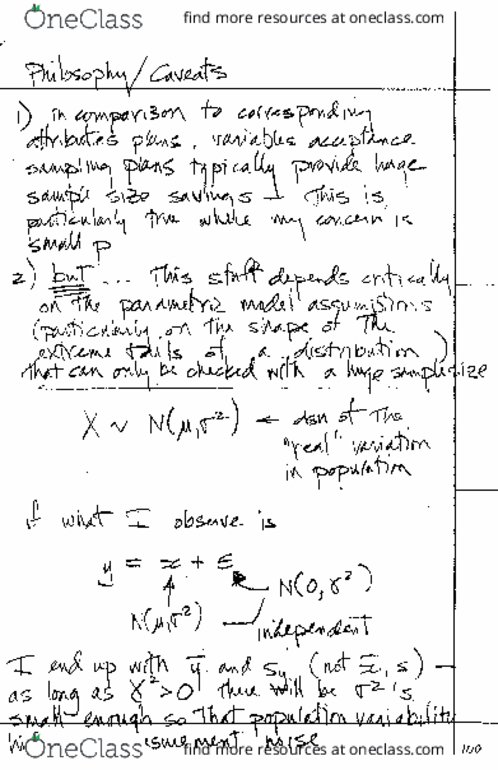 OneClass
find more resources at oneclass.com
Philosophy/Caveats
1) in comparison to corresponding
attributes plans, variables acceptance
sampling plans typically provide huge
sample size savings – This is
particularly true where my concern is
small p
2) but ... This stuff depends critically
on the parametric model assumptions
(particularly on the shape of the
extreme tails of a distribution)
that can only be checked with a huge sample size
X ~ N(μ,σ²) ← dsn of the
"real" variation
in population
if what I observe is
y = x + ε
N(0,γ²)
N(μ,σ²)
independent
I end up with ȳ and sy (not x̄, s) –
as long as γ²>0 there will be σ²'s
small enough so that population variability
surement noise
OneClass
find more resources at oneclass.com
100